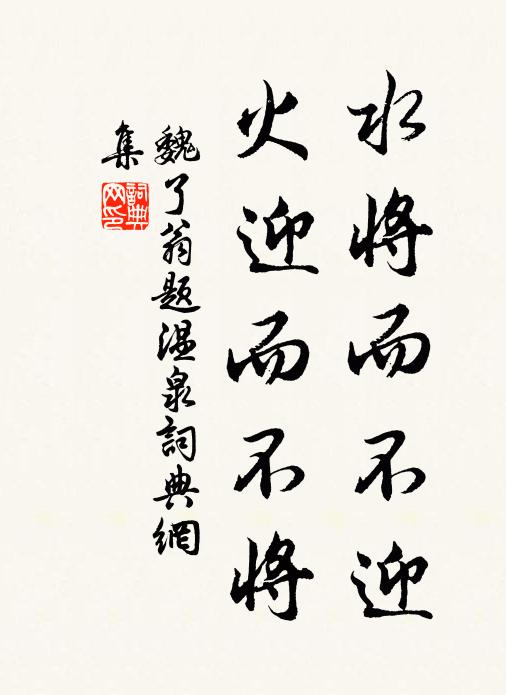 水將而不迎
火迎而不將
魏了翁題溫泉詞典網
集
詞典
网印